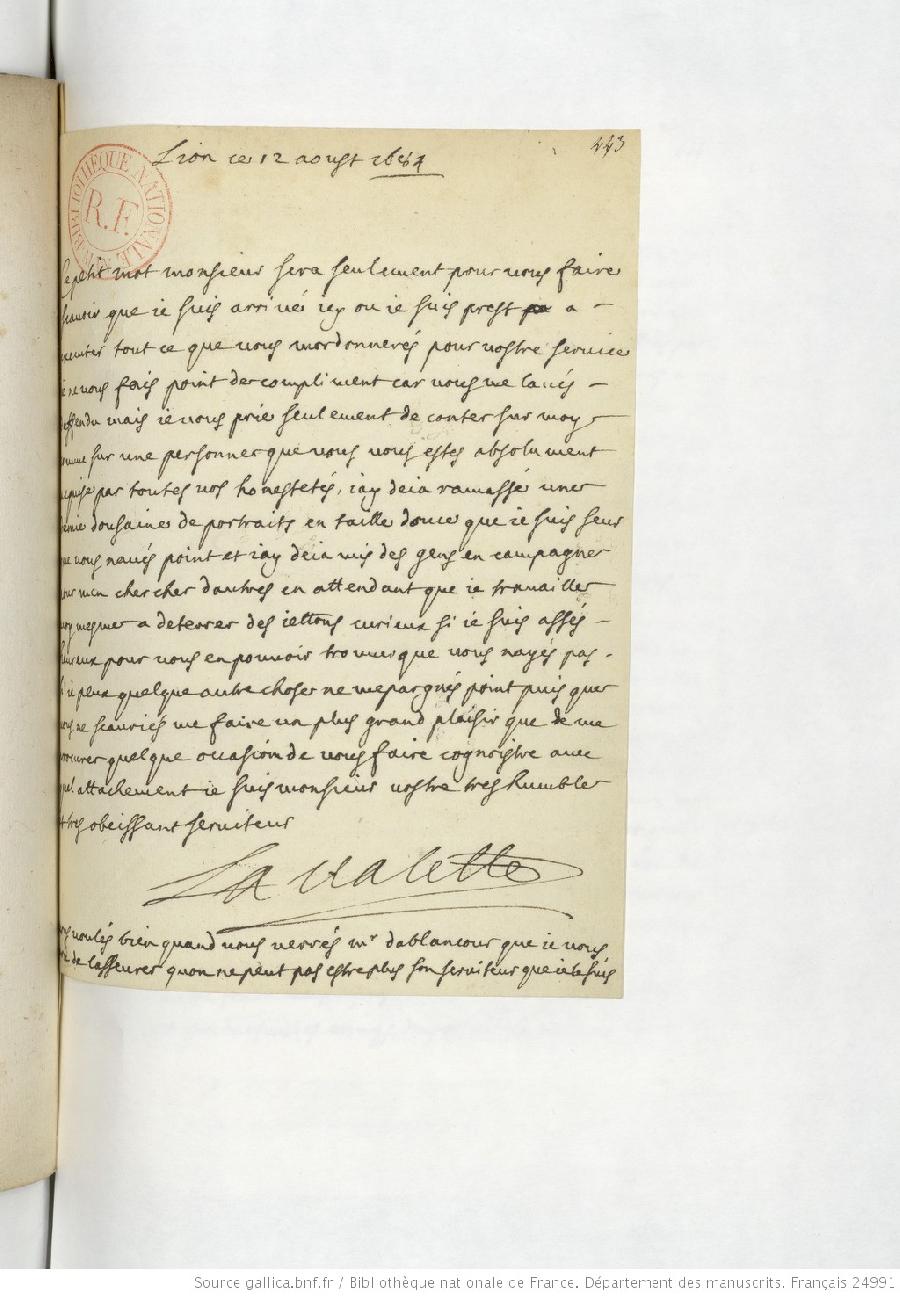 443
Lion ce 12 aoust 1684
BIBLIOTHEQUE NATIONALE
R.F.
Ce petit mot monsieur sera seulement pour vous faire
scauoir que ie suis arriué icy ou ie suis prest a
tout ce que vous mordonnerés pour vostre seruice
ie ne vous fais point de compliment car vous me laués
deffendu mais ie vous prie seulement de conter sur moy
comme sur une personne que vous vous estes absolument
aquise par toutes vos honestetés, iay deia ramassé une
demie dousaine de portraits en taille douce que ie suis seur
que vous naués point et iay deia mis des gens en campagne
pour men chercher dautres en attendant que ie trauaille
moy mesme a deterrer des iettons curieux si ie suis assés
heureux pour vous en pouuoir trouuer que vous nayés pas.
si ie peux quelque autre chose ne mepargnés point puis que
vous ne scauriés me faire un plus grand plaisir que de me
procurer quelque occasion de vous faire cognoistre auec
quel attachement ie suis monsieur vostre tres humble
et tres obeissant seruiteur
La Valette
vous voulés bien quand vous verrés mr dablancour que ie vous
prie de lasseurer quon ne peut pas estre plus son seruiteur que ie le suis
Source gallica.bnf.fr / Bibliothèque nationale de France. Département des manuscrits. Français 24991